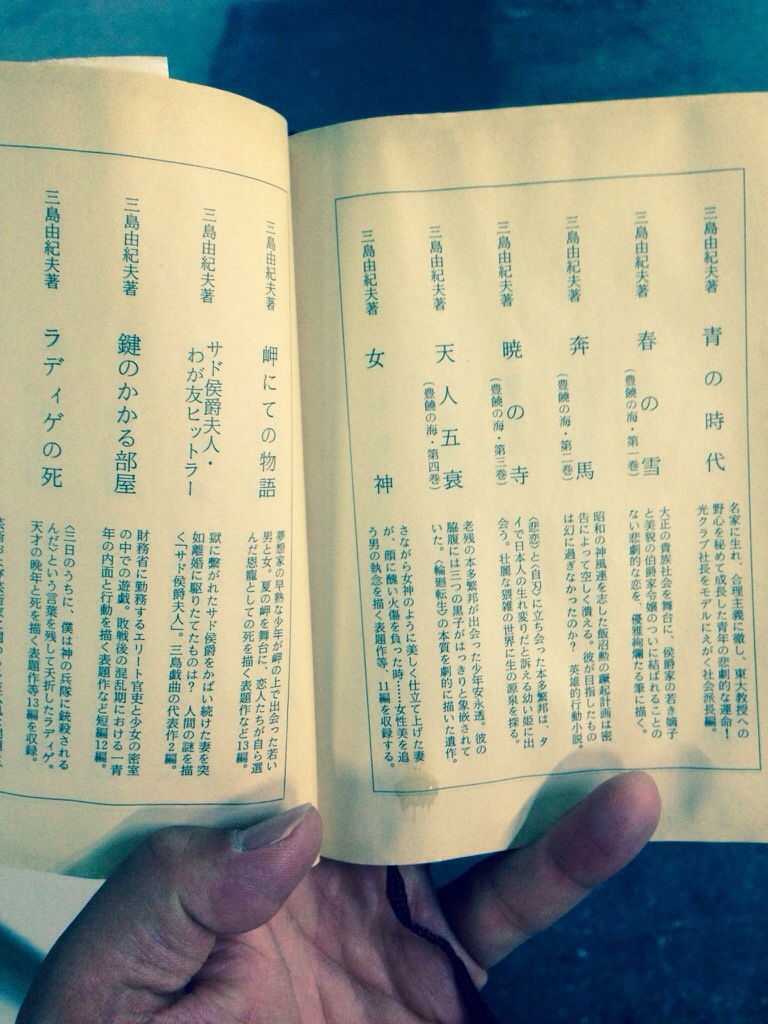 三島由紀夫著
青の時代
名家に生れ、合理主義に徹し、東大教授への
野心を秘めて成長した青年の悲劇的な運命！
光クラブ社長をモデルにえがく社会派長編。
三島由紀夫著
春の雪
(豊饒の海・第一巻)
大正の貴族社会を舞台に、侯爵家の若き嫡子
と美貌の伯爵家令嬢のついに結ばれることの
ない悲劇的な恋を、優雅絢爛たる筆に描く。
三島由紀夫著
奔馬
(豊饒の海・第二巻)
昭和の神風連を志した飯沼勲の蹶起計画は密
告によって空しく潰える。彼が目指したもの
は幻に過ぎなかったのか？ 英雄的行動小説。
三島由紀夫著
暁の寺
(豊饒の海・第三巻)
〈悲恋〉と〈自刃〉に立ち会った本多繁邦は、タ
イで日本人の生れ変りだと訴える幼い姫に出
会う。壮麗な猥雑の世界に生の源泉を探る。
三島由紀夫著
天人五衰
(豊饒の海・第四巻)
老残の本多繁邦が出会った少年安永透。彼の
脇腹には三つの黒子がはっきりと象嵌されて
いた。〈輪廻転生〉の本質を劇的に描いた遺作。
三島由紀夫著
女神
さながら女神のように美しく仕立て上げた妻
が、顔に醜い火傷を負った時……女性美を追
う男の執念を描く表題作等、11編を収録する。
三島由紀夫著
岬にての物語
夢想家の早熟な少年が岬の上で出会った若い
男と女。夏の岬を舞台に、恋人たちが自ら選
んだ恩寵としての死を描く表題作など13編。
三島由紀夫著
サド侯爵夫人・
わが友ヒットラー
獄に繋がれたサド侯爵をかばい続けた妻を突
如離婚に駆りたてたものは？ 人間の謎を描
く「サド侯爵夫人」。三島戯曲の代表作2編。
三島由紀夫著
鍵のかかる部屋
財務省に勤務するエリート官吏と少女の密室
の中での遊戯。敗戦後の混乱期における一青
年の内面と行動を描く表題作など短編12編。
三島由紀夫著
ラディゲの死
〈三日のうちに、僕は神の兵隊に銃殺される
んだ〉という言葉を残して夭折したラディゲ。
天才の晩年と死を描く表題作等13編を収録。